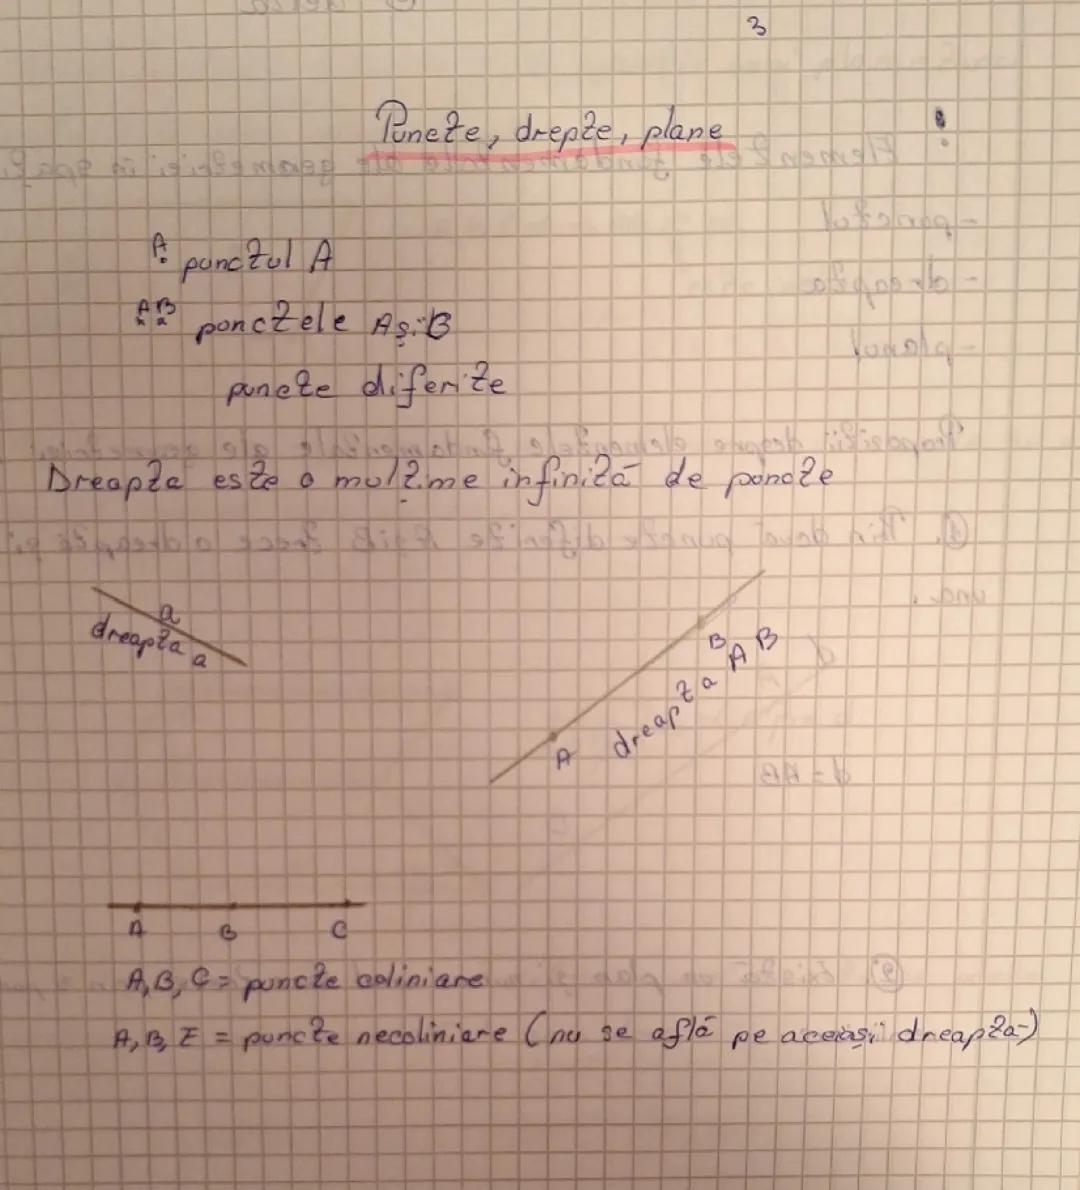 3
Puncte, drepte, plane
!
A
punctul A
A B
punctele A și B
puncte diferite
Dreapta este o mulțime infinită de puncte
a
dreapta a
B
A
dreapta AB
A B C
A, B, C = puncte coliniare
A, B, E = puncte necoliniare (nu se află pe aceiași dreapta)